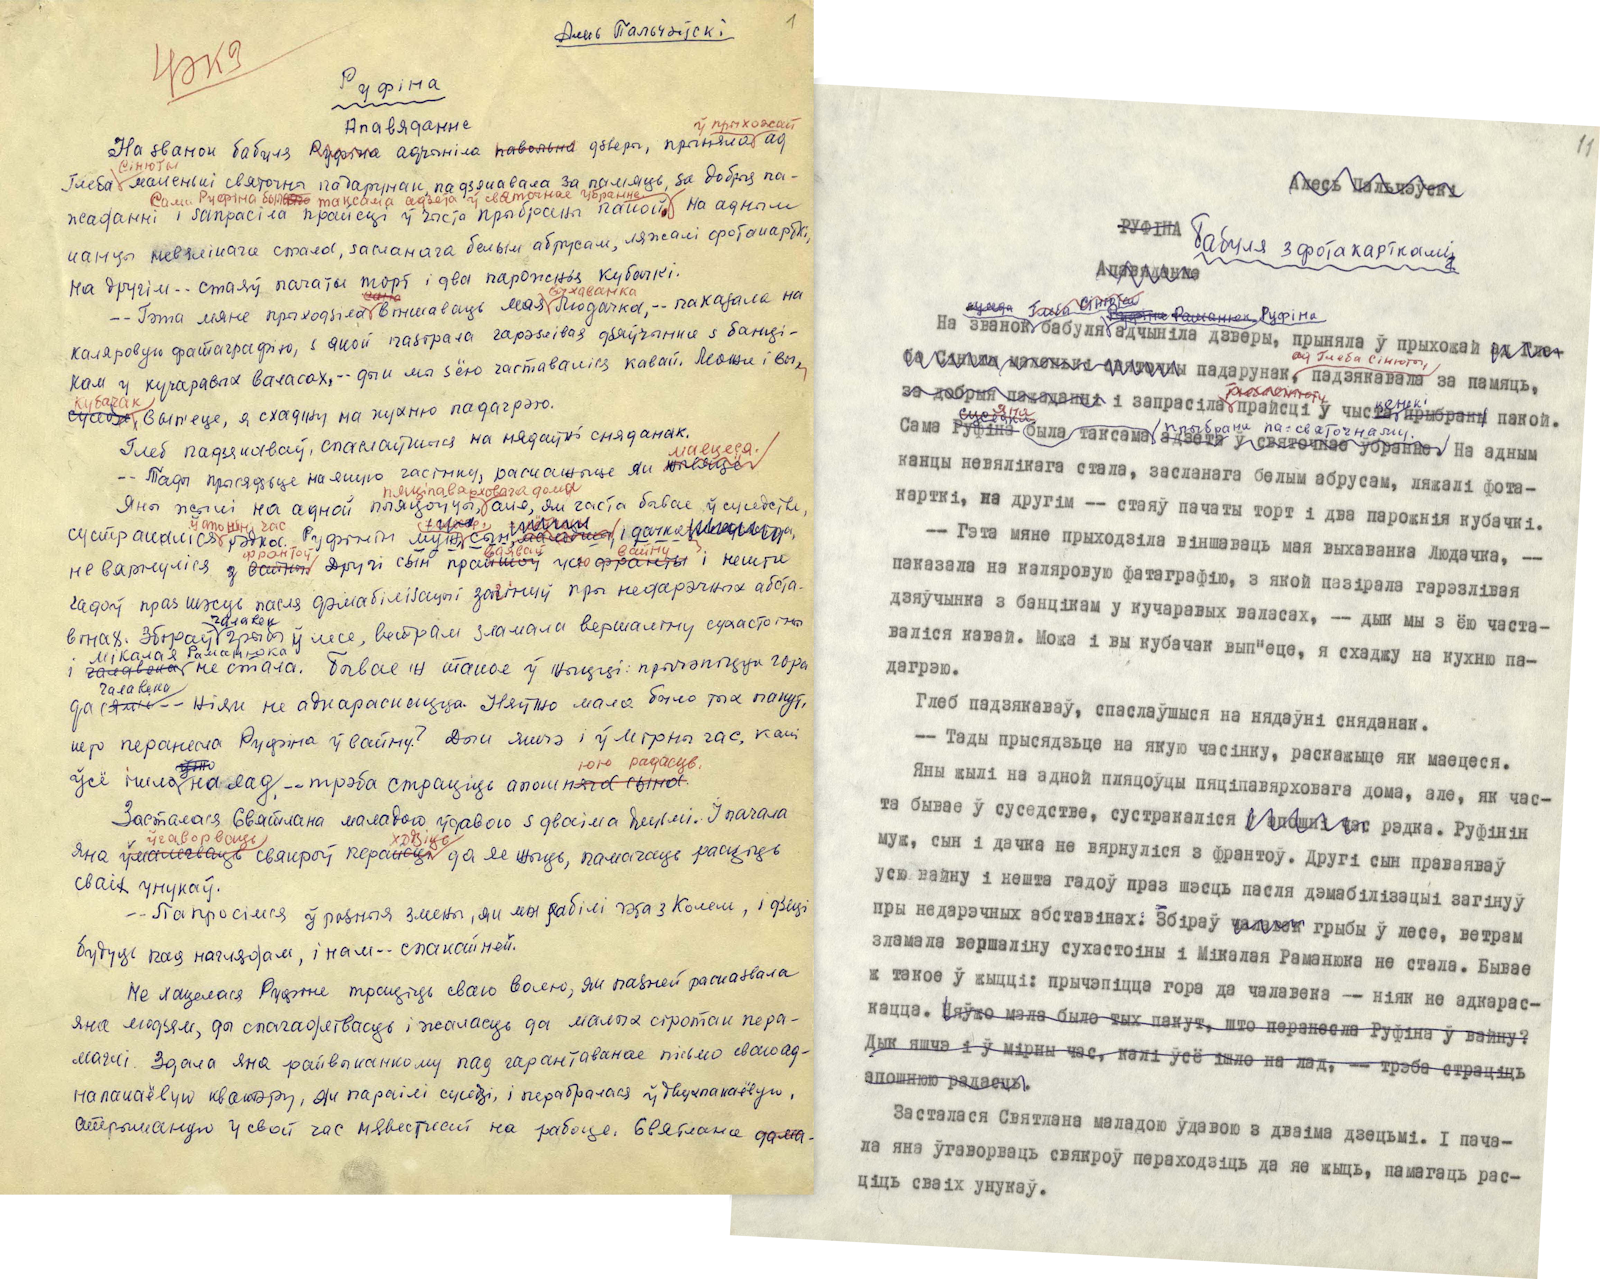 1
Алесь Пальчэўскі
Руфіна
Апавяданне
ў прыхожай
На званок бабуля Руфіна адчыніла павольна дзверы, прыняла ад
Сінюты
Глеба маленькі святочны падарунак, падзякавала за памяць, за добрыя па-
Сама Руфіна была таксама адзета ў святочнае ўбранне.
жаданні і запрасіла прайсці ў чыста прыбраны пакой. На адным
канцы невялікага стала, засланага белым абрусам, ляжалі фотакарткі,
на другім -- стаяў пачаты торт і два парожнія кубачкі.
выхаванка
-- Гэта мяне прыходзіла віншаваць мая Людачка, -- паказала на
каляровую фатаграфію, з якой пазірала гарэзлівая дзяўчынка з банці-
кам у кучаравых валасах, -- дык мы з ёю частаваліся кавай. Можа і вы,
кубачак
вып'еце, я схаджу на кухню падагрэю.
Глеб падзякаваў, спаслаўшыся на нядаўні сняданак.
маецеся.
-- Тады прысядзьце на якую часінку, раскажыце як
пяціпавярховага дома
Яны жылі на адной пляцоўцы, але, як часта бывае ў суседстве,
ў апошні час
сустракаліся рэдка. Руфінін муж, сын, і дачка
франтоў ваяваў вайну
не вярнуліся з вайны. Другі сын прайшоў усю франты і нешта
гадоў праз шэсць пасля дэмабілізацыі загінуў пры недарэчных абста-
чалавек
вінах. Збіраў грыбы ў лесе, ветрам зламала вершаліну сухастоіны
Мікалая Раманюка
і чалавека не стала. Бывае ж такое ў жыцці: прычэпіцца гора
чалавека
да сям'і -- ніяк не адкараскацца. Няўжо мала было тых пакут,
што перанесла Руфіна ў вайну? Дык яшчэ і ў мірны час, калі
юю радасць.
ўсё ішло на лад, -- трэба страціць апошняга сына.
Засталася Святлана маладою ўдавою з дваіма дзецьмі. І пачала
ўгаворваць ходзіць
яна ўмаляваць свякроў перайсці да яе жыць, памагаць расціць
сваіх унукаў.
-- Папросімся ў розныя змены, як мы рабілі гэта з Колем, і дзеці
будуць пад наглядам, і нам -- спакайней.
Не хацелася Руфіне траціць сваю волю, як пазней расказвала
яна людзям, ды спагадлівасць і жаласць да малых сіротак пера-
маглі. Здала яна райвыканкому пад гарантаванае пісьмо сваю ад-
напакаёвую кватэру, як параілі суседзі, і перабралася ў двухпакаёвую,
атрыманую ў свой час нявесткай на рабоце. Святлана дама-
11
Алесь Пальчэўскі
РУФІНА Бабуля з фотакарткамі
Апавяданне
Глеба Сінюты Руфіна Раманюк Руфіна
На званок бабуля адчыніла дзверы, прыняла ў прыхожай ад Гле-
ад Глеба Сінюты,
ба Сінюты маленькі святочны падарунак, падзякавала за памяць,
за добрыя пажаданні і запрасіла прайсці ў чыста прыбраны пакой.
яна прыбрана па-святочнаму.
Сама Руфіна была таксама адзета ў святочнае ўбранне. На адным
канцы невялікага стала, засланага белым абрусам, ляжалі фота-
карткі, на другім -- стаяў пачаты торт і два парожнія кубачкі.
-- Гэта мяне прыходзіла віншаваць мая выхаванка Людачка, --
паказала на каляровую фатаграфію, з якой пазірала гарэзлівая
дзяўчынка з банцікам у кучаравых валасах, -- дык мы з ёю часта-
валіся кавай. Можа і вы кубачак вып"еце, я схаджу на кухню па-
дагрэю.
Глеб падзякаваў, спаслаўшыся на нядаўні сняданак.
-- Тады прысядзьце на якую часінку, раскажыце як маецеся.
Яны жылі на адной пляцоўцы пяціпавярховага дома, але, як час-
та бывае ў суседстве, сустракаліся ў апошні час рэдка. Руфінін
муж, сын і дачка не вярнуліся з франтоў. Другі сын праваяваў
усю вайну і нешта гадоў праз шэсць пасля дэмабілізацыі загінуў
пры недарэчных абставінах: Збіраў чалавек грыбы ў лесе, ветрам
зламала вершаліну сухастоіны і Мікалая Раманюка не стала. Бывае
ж такое ў жыцці: прычэпіцца гора да чалавека -- ніяк не адкарас-
кацца. Няўжо мала было тых пакут, што перанесла Руфіна ў вайну?
Дык яшчэ і ў мірны час, калі ўсё ішло на лад, -- трэба страціць
апошнюю радасць.
Засталася Святлана маладою ўдавою з дваіма дзецьмі. І пача-
ла яна ўгаворваць свякроў пераходзіць да яе жыць, памагаць рас-
ціць сваіх унукаў.